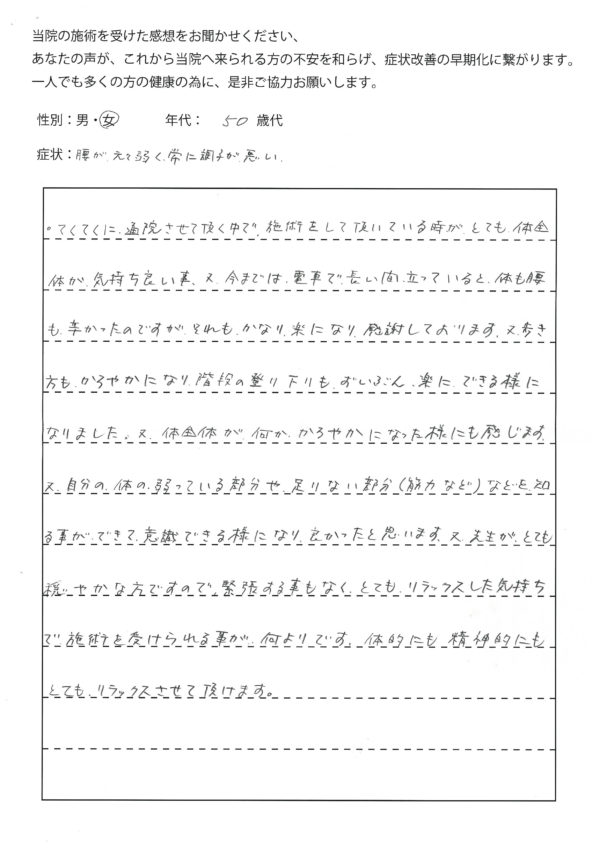 当院の施術を受けた感想をお聞かせください、
あなたの声が、これから当院へ来られる方の不安を和らげ、症状改善の早期化に繋がります。
一人でも多くの方の健康の為に、是非ご協力お願いします。
性別：男・女 年代： 50 歳代
症状：腰が、元々弱く、常に調子が、悪い、
。てくてくに、通院させて頂く中で、施術をして頂いている時が、とても、体全
体が、気持ち良い事、又、今までは、電車で、長い間、立っていると、体も腰
も、辛かったのですが、それも、かなり、楽になり、感謝しております、又、歩き
方も、かろやかになり、階段の登り下りも、ずいぶん、楽に、できる様に
なりました。又、体全体が、何か、かろやかになった様にも感じます。
又、自分の、体の、弱っている部分や、足りない部分(筋力など)などを、知
る事が、できて、意識できる様になり、良かったと思います、又、先生が、とても
穏やかな方ですので、緊張する事もなく、とても、リラックスした気持ち
で施術を受けられる事が、何よりです。体的にも、精神的にも
とても、リラックスさせて頂けます。